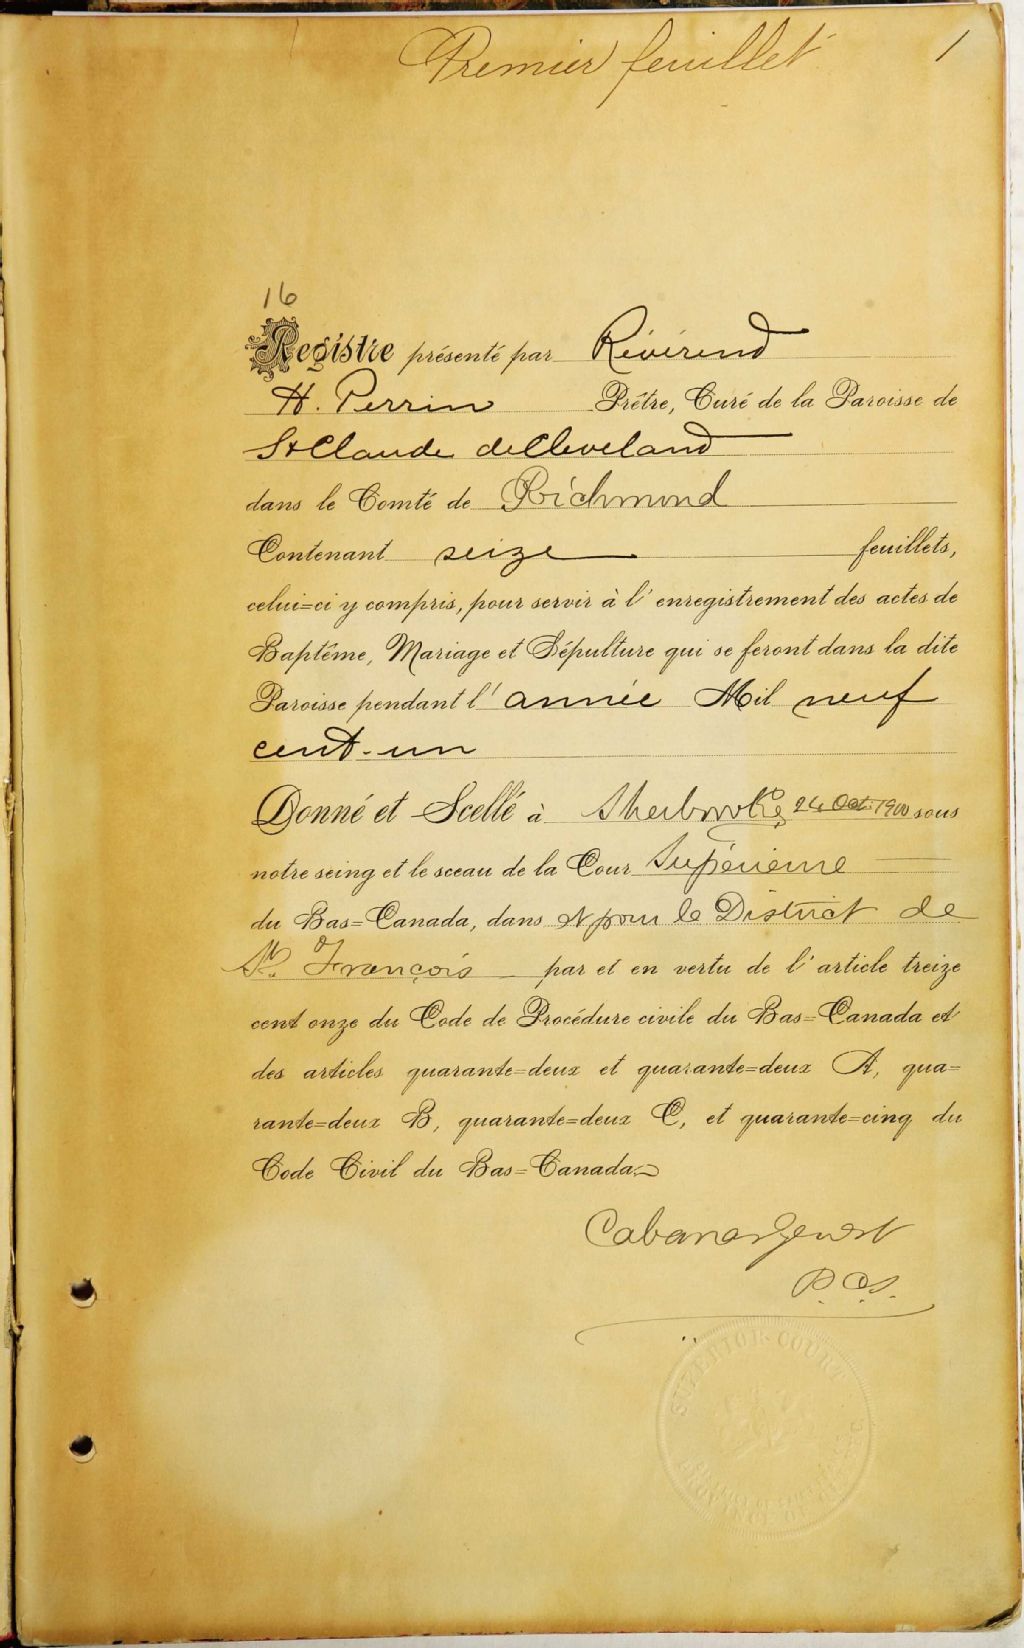 Premier feuillet 1
16
Registre présenté par Révérend
H. Perrin Prêtre, Curé de la Paroisse de
St Claude de Cleveland
dans le Comté de Richmond
Contenant seize feuillets,
celui=ci y compris, pour servir à l'enregistrement des actes de
Baptême, Mariage et Sépulture qui se feront dans la dite
Paroisse pendant l'année Mil neuf
cent-un
Donné et Scellé à Sherbrooke, 24 Oct. 1900 sous
notre seing et le sceau de la Cour Supérieure
du Bas=Canada, dans et pour le District de
St. François par et en vertu de l'article treize
cent onze du Code de Procédure civile du Bas=Canada et
des articles quarante=deux et quarante=deux A, qua=
rante=deux B, quarante=deux C, et quarante=cinq du
Code Civil du Bas=Canada.
P.C.S.
SUPERIOR COURT
PROVINCE OF